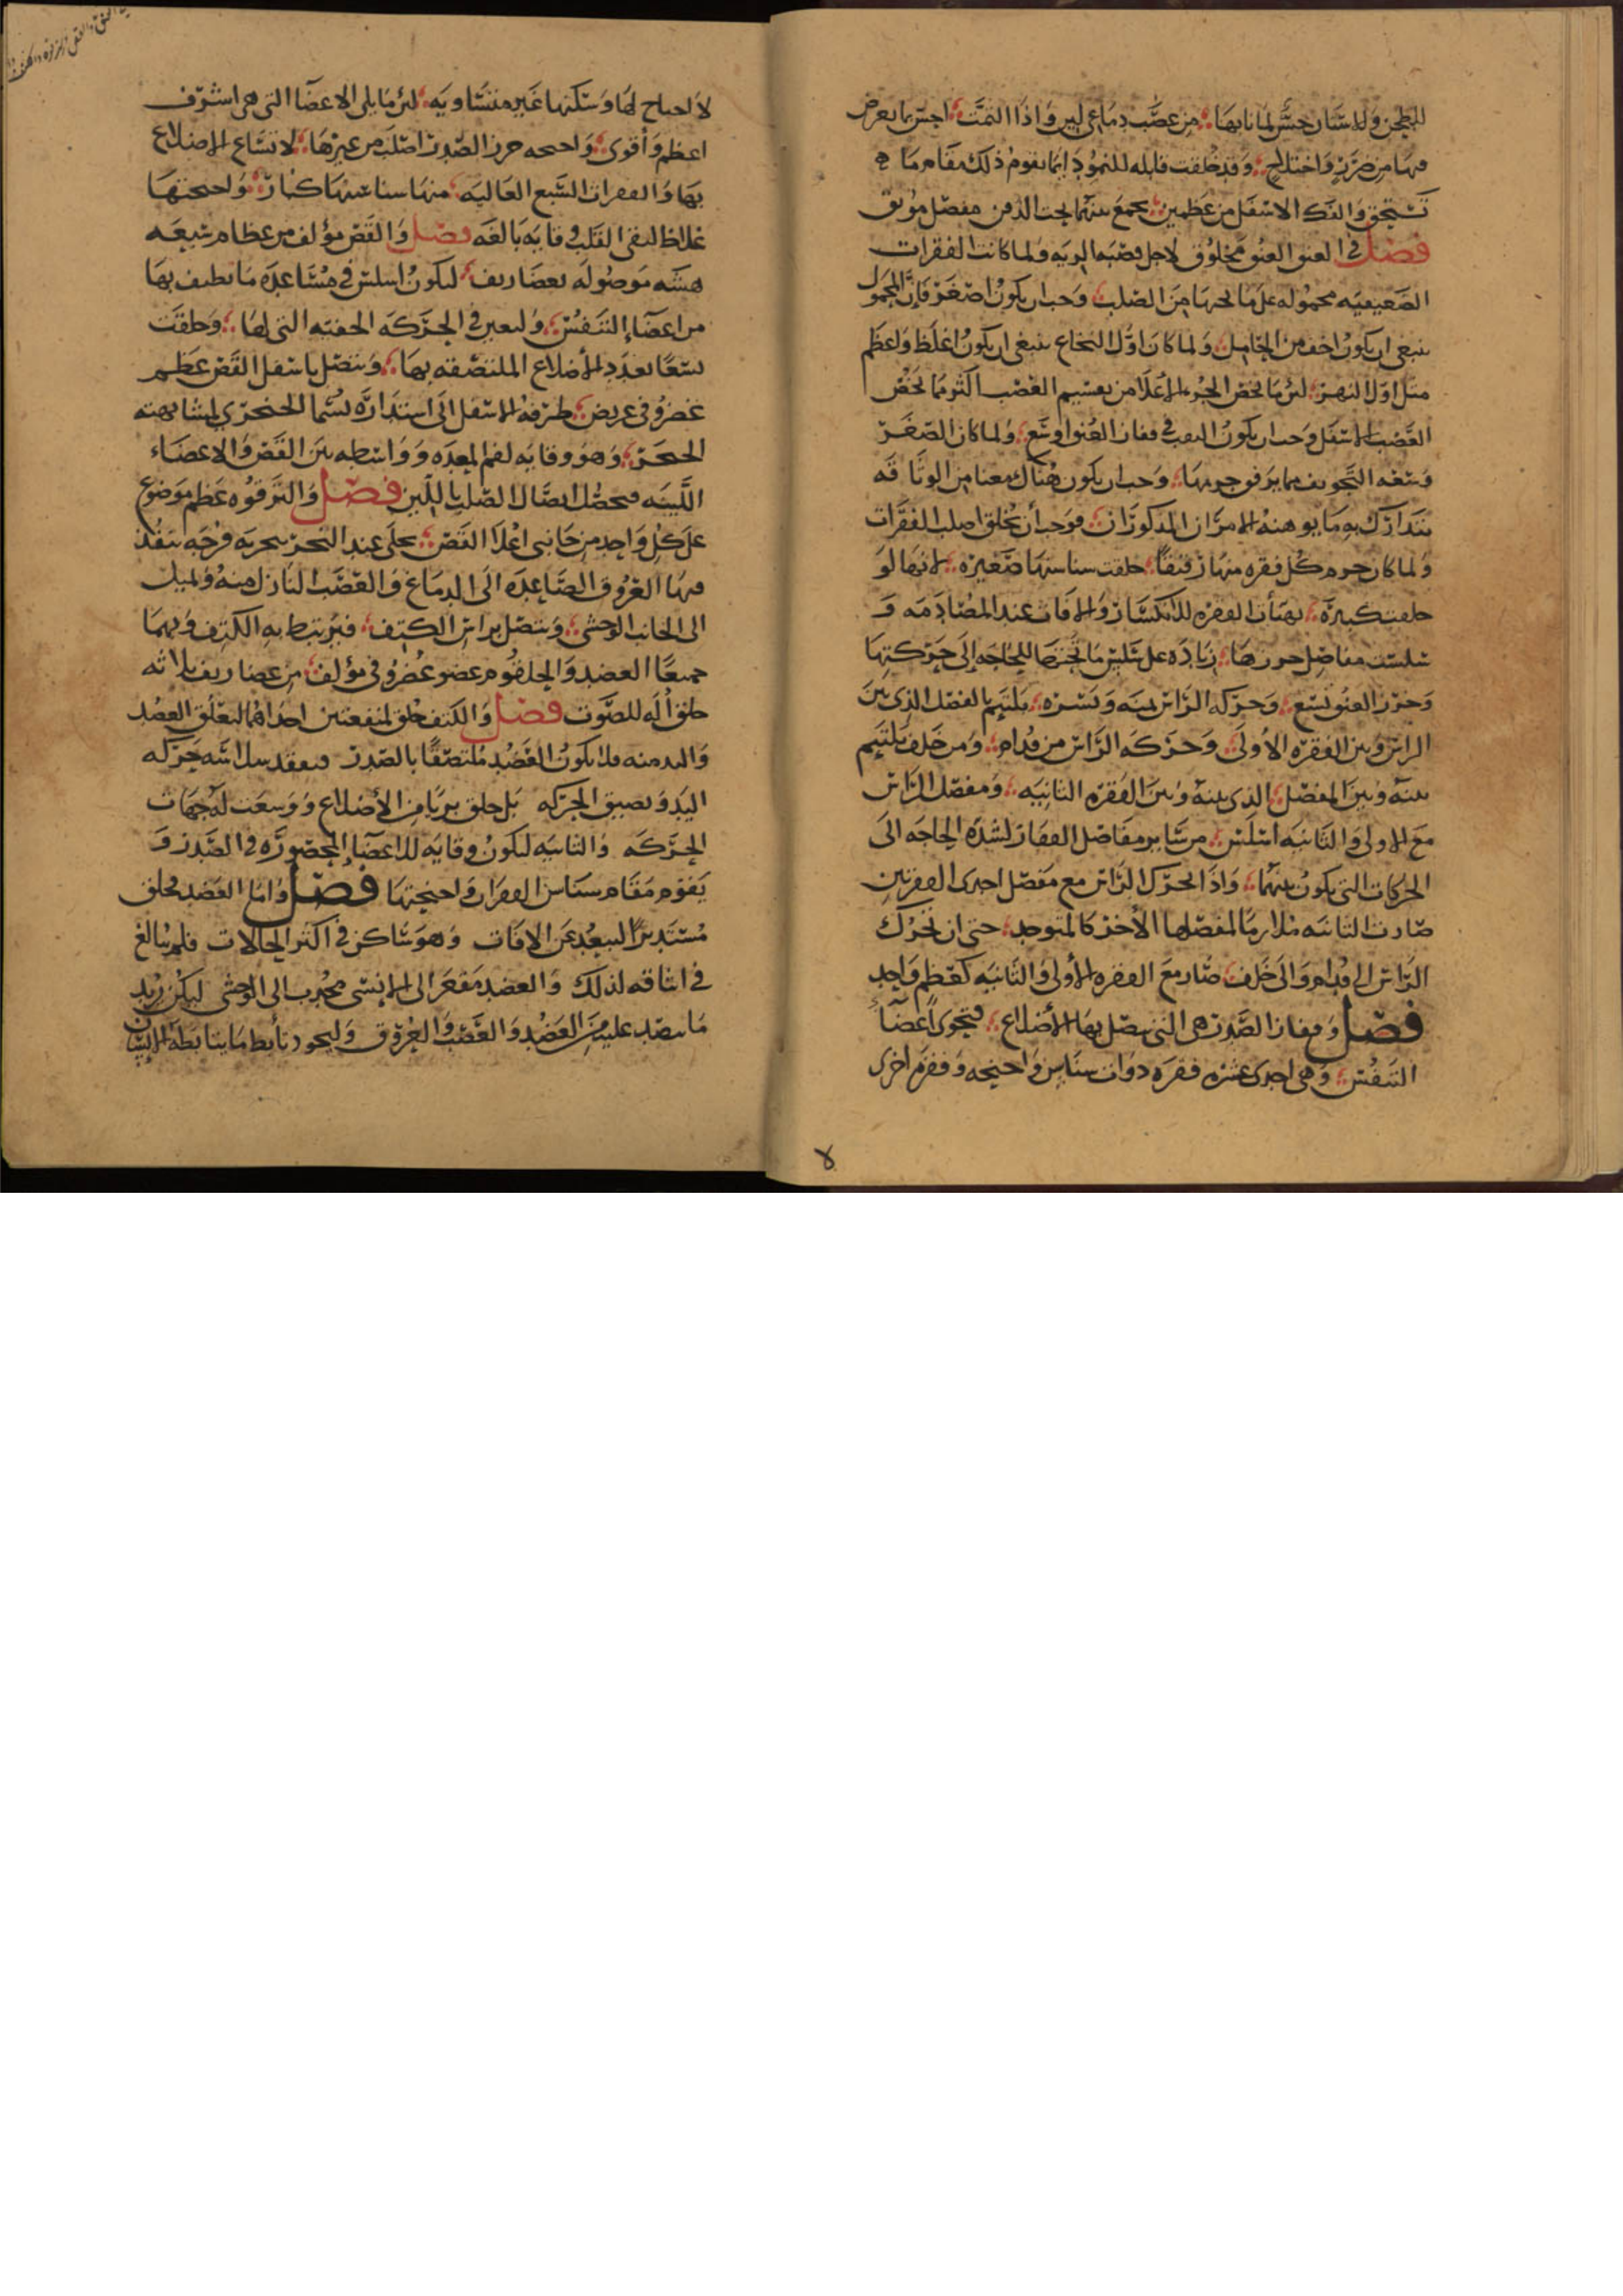 للطحن وللاسنان حس لما نابها من عصب دماغي لين واذا التمت احس بما يعرض
فيها من ضرر واختلاج وقد خلقت قابله للنمو دايما يقوم ذلك مقام ما
تنسحق والفك الاسفل من عظمين يجمع بينهما تحت الذقن مفصل موثق
فصل في العنق العنق مخلوق لاجل قصبه الريه ولما كانت الفقرات
العنقيه محموله على ما تحتها من الصلب وجب ان يكون اصغر فان المحمول
ينبغي ان يكون اخف من الحامل ولما كان اول النخاع ينبغي ان يكون اغلظ واعظم
مثل اول النهر لان ما يخص الجزء الاعلا من تقسيم العصب اكثر مما يخص
القسم الاسفل وجب ان يكون الثقب في فقار العنق اوسع ولما كان الصغر
وسعه التجويف مما يرفق جرمها وجب ان يكون هناك معنا من الوثاقه
يتدارك به ما يوهنه الامران المذكوران فوجب ان يخلق اصلب الفقرات
ولما كان جرم كل فقره منها رقيقا خلقت سناسنها صغيره لانها لو
خلقت كبيره تهيات الفقره للانكسار والافات عند المصادمه و
سلست مفاصل خرزها زياده على سلس ما تحتها للحاجه الى حركتها
وخرز العنق سبع وحركه الراس يمنه ويسره يلتيم بالفصل الذي بين
الراس وبين الفقره الاولى وحركه الراس من قدام ومن خلف يلتيم
بينه وبين المفصل الذي بينه وبين الفقره الثانيه ومفصل الراس
مع الاولى والثانيه اسلس من ساير مفاصل الفقار لشده الحاجه الى
الحركات التي يكون بينهما واذا تحرك الراس مع مفصل احدى الفقرتين
صارت الثانيه ملازما لمفصلها الاخر كالمتوحد حتى ان تحرك
الراس الى قدام والى خلف صار مع الفقره الاولى والثانيه كعظم واحد
فصل وفقار الصدر هي التي يتصل بها الاضلاع فتحوي اعضاء
التنفس وهي احدى عشره فقره دوات سناسن واجنحه وفقره اخرى
لا اجناح لها وسنكنها غير متساويه لان ما يلي الاعضا التي هي اشرف
اعظم واقوى واجنحه خرز الصدر اصلب من غيرها لاتساع الاضلاع
بها والفقرات السبع العاليه منها سناسنها كبار واجنحتها
غلاظ لتقي القلب وقايه بالغه فصل والقص مؤلف من عظام سبعه
هشه موصوله بغضاريف ليكون اسلس في مساعده ما يطيف بها
من اعضاء التنفس وليعين في الحركه الخفيه التي لها وخلقت
سبعا بعدد الاضلاع الملتصقه بها ويتصل باسفل القص عظم
غضروفي عريض طرفه الاسفل الى استداره يسما الخنجري لمشابهته
الخنجر وهو وقايه لفم المعده وواسطه بين القص والاعضاء
اللينه فيحصل ايصال الصلب باللين فصل والترقوه عظم موضوع
على كل واحد من جانبي اعلا القص يخلى عند النحر بتحريه فرجه ينفذ
فيها العروق الصاعده الى الدماغ والعصب النازل منه ويميل
الى الجانب الوحشي ويتصل براس الكتف فيرتبط به الكتف وبهما
جميعا العضد والحلقوم عضو غضروفي مؤلف من غضاريف ثلاثه
خلق اله للصوت فصل والكتف خلق لمنفعتين احداهما ليعلق العضد
واليد منه فلا يكون العضد ملتصقا بالصدر فيفقد سلاسه حركه
اليد ويضيق الحركه بل خلق بريا من الاضلاع ووسعت له جهات
الحركه والثانيه ليكون وقايه للاعضاء المحصوره في الصدر و
يقوم مقام سناسن الفقرات واجنحتها فصل واما العضد فخلق
مستديرا ليبعد عن الافات وهو ساكن في اكثر الحالات فلم يبالغ
في اثاقه لذلك والعضد مقعر الى الانسي محدب الى الوحشي ليكن بذلك
ما ينضد عليه من العضد والعصب والعروق وليجود تأبط ما يتابطه الانسان